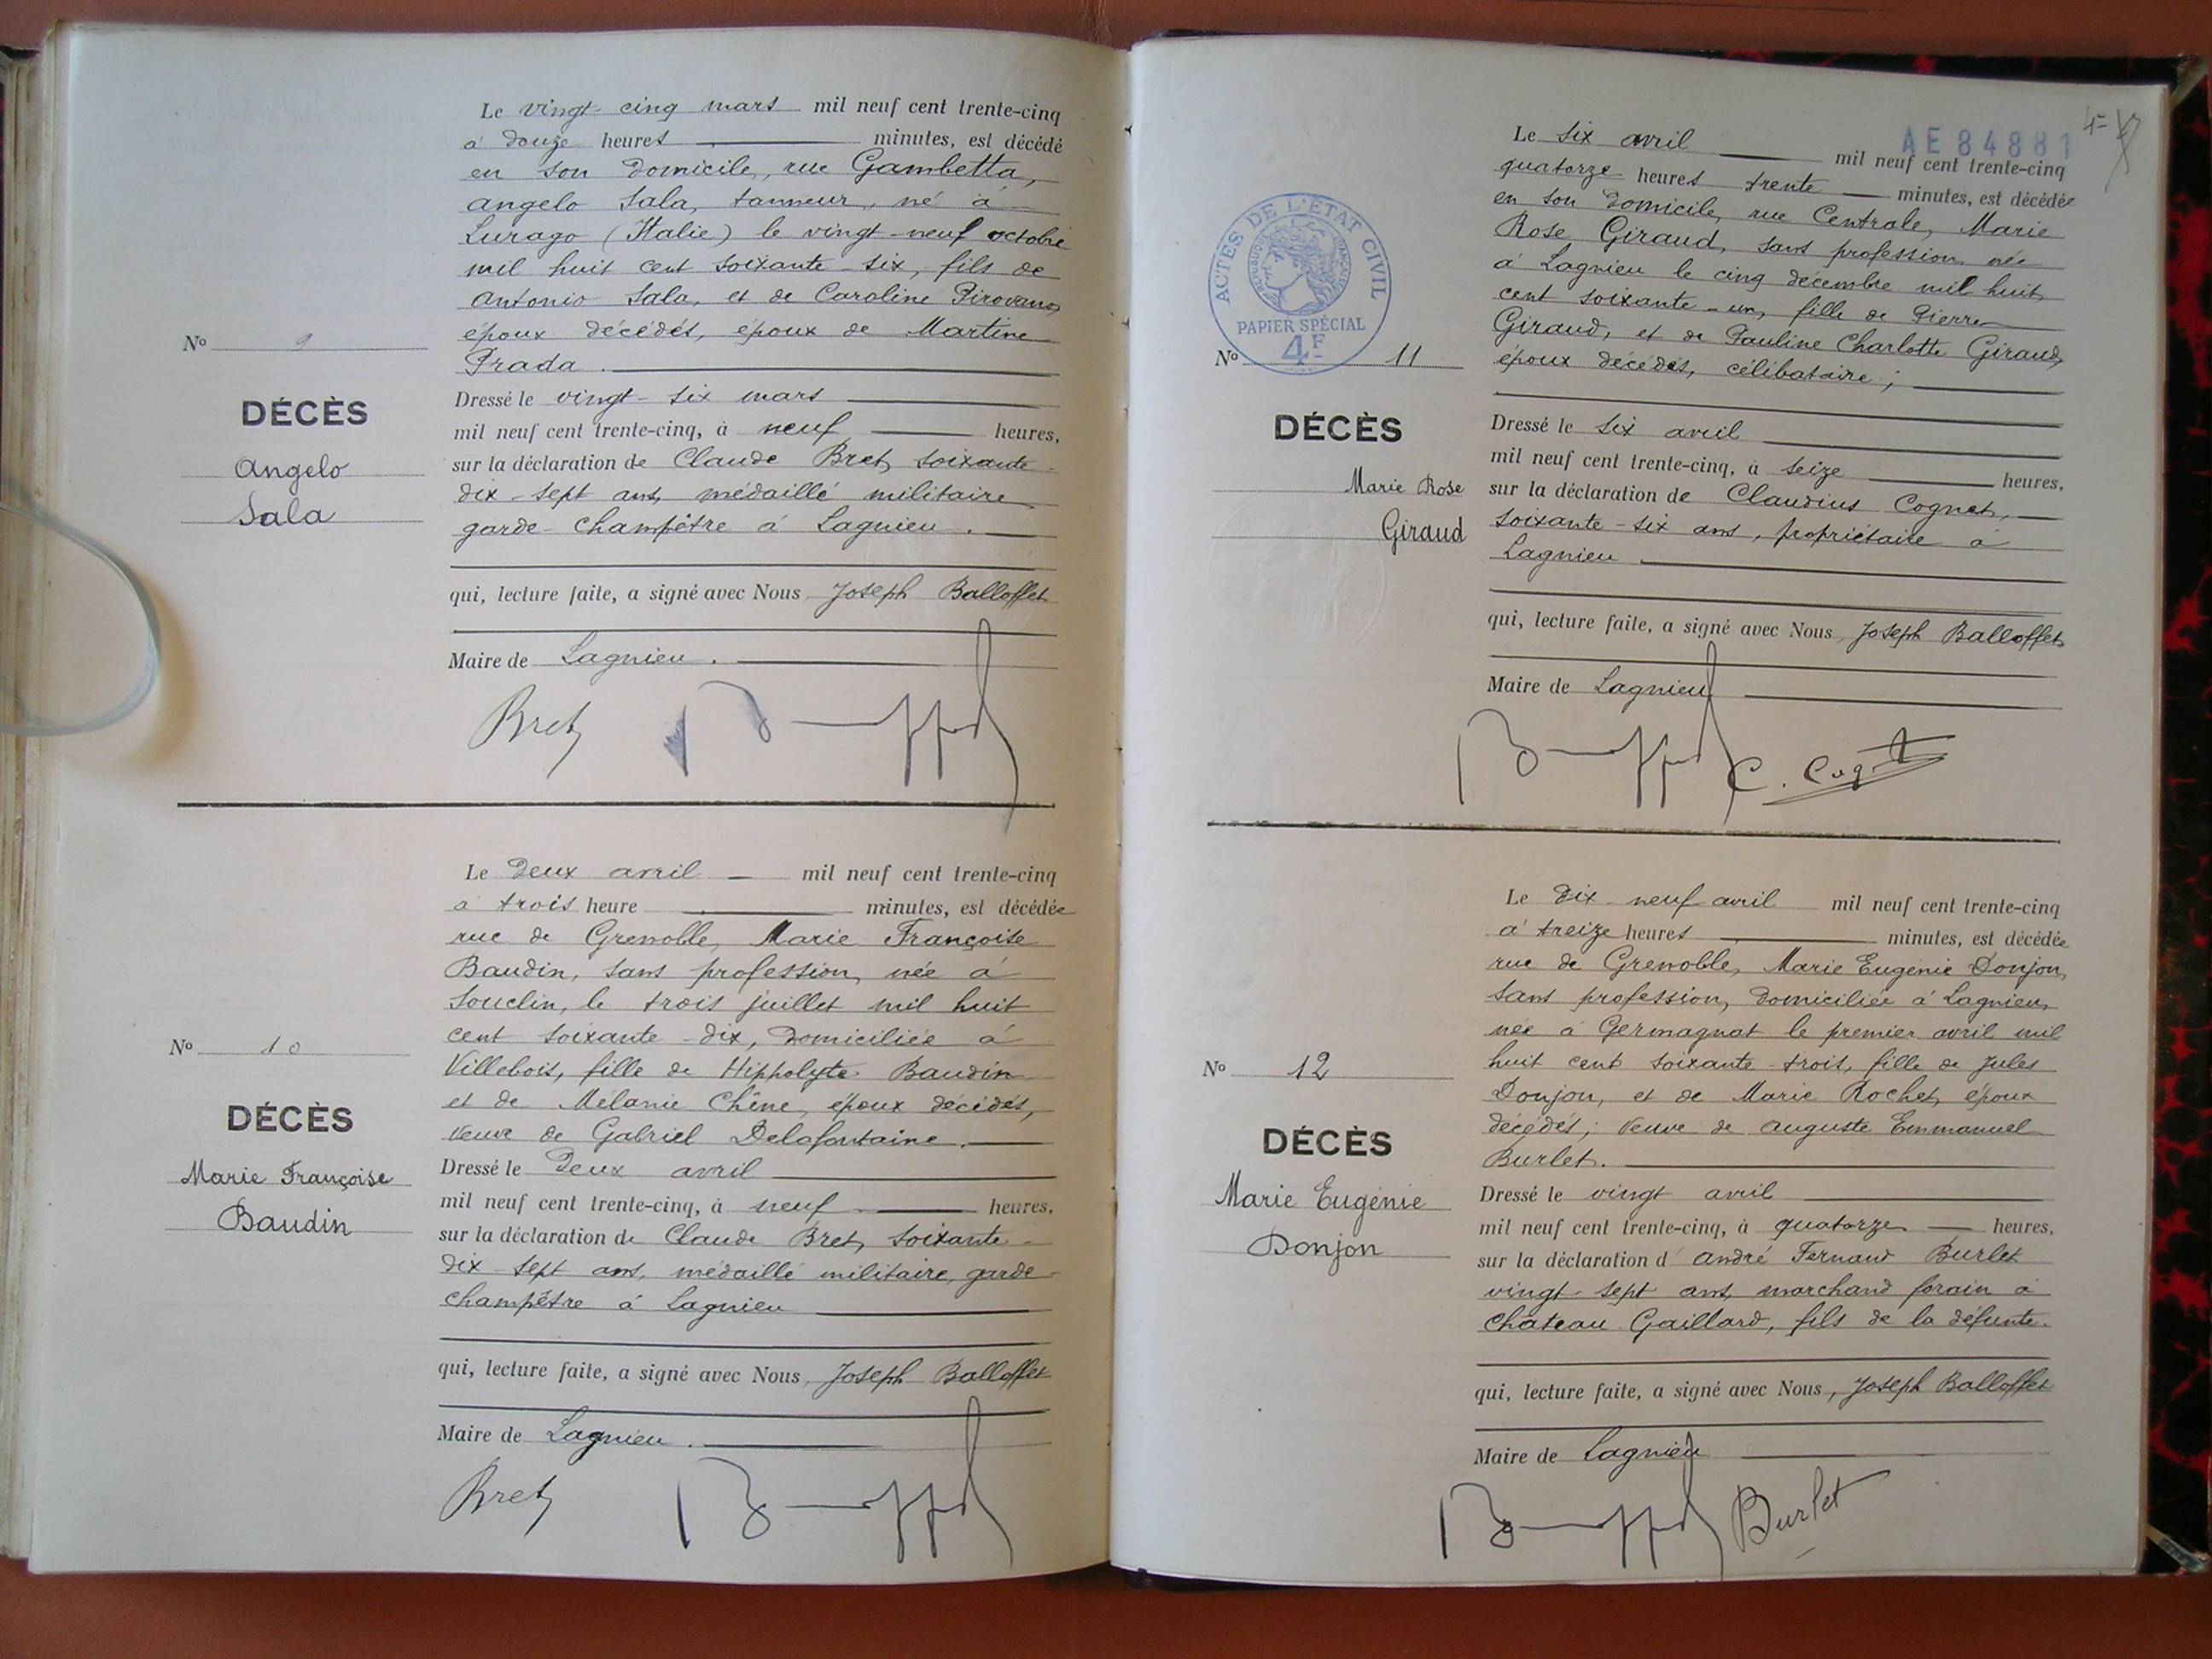 Le vingt-cinq mars mil neuf cent trente-cinq
à douze heures minutes, est décédé
en son domicile, rue Gambetta,
Angelo Sala, tanneur, né à
Lurago (Italie) le vingt-neuf octobre
mil huit cent soixante-six, fils de
Antonio Sala, et de Caroline Pirovano,
époux décédés, époux de Martine
Prada.
Nº 9
DÉCÈS
Angelo
Sala
Dressé le vingt-six mars
mil neuf cent trente-cinq, à neuf heures,
sur la déclaration de Claude Bret, soixante-
dix-sept ans, médaillé militaire
garde-champêtre à Lagnieu.
qui, lecture faite, a signé avec Nous, Joseph Balloffet
Maire de Lagnieu.
Bret
Le deux avril mil neuf cent trente-cinq
à trois heure minutes, est décédée
rue de Grenoble, Marie Françoise
Baudin, sans profession, née à
Souclin, le trois juillet mil huit
cent soixante-dix, domiciliée à
Villebois, fille de Hippolyte Baudin
et de Mélanie Chêne, époux décédés,
veuve de Gabriel Delafontaine.
Nº 10
DÉCÈS
Marie Françoise
Baudin
Dressé le deux avril
mil neuf cent trente-cinq, à neuf heures,
sur la déclaration de Claude Bret, soixante-
dix-sept ans, médaillé militaire, garde-
champêtre à Lagnieu
qui, lecture faite, a signé avec Nous, Joseph Balloffet
Maire de Lagnieu.
Bret
AE84881
Le six avril mil neuf cent trente-cinq
quatorze heures trente minutes, est décédée
en son domicile, rue Centrale, Marie
Rose Giraud, sans profession née
à Lagnieu le cinq décembre mil huit
cent soixante-un, fille de Pierre
Giraud, et de Pauline Charlotte Giraud,
époux décédés, célibataire;
ACTES DE L'ÉTAT CIVIL
RÉPUBLIQUE FRANÇAISE
PAPIER SPÉCIAL
4F
Nº 11
DÉCÈS
Marie Rose
Giraud
Dressé le six avril
mil neuf cent trente-cinq, à seize heures,
sur la déclaration de Claudius Cognet,
soixante-six ans, propriétaire à
Lagnieu
qui, lecture faite, a signé avec Nous, Joseph Balloffet
Maire de Lagnieu
C. Cognet
Le dix-neuf avril mil neuf cent trente-cinq
à treize heures minutes, est décédée
rue de Grenoble, Marie Eugénie Donjon,
sans profession, domiciliée à Lagnieu,
née à Germagnat le premier avril mil
huit cent soixante-trois, fille de Jules
Donjon, et de Marie Rochet, époux
décédés; veuve de Auguste Emmanuel
Burlet.
Nº 12
DÉCÈS
Marie Eugénie
Donjon
Dressé le vingt avril
mil neuf cent trente-cinq, à quatorze heures,
sur la déclaration d'André Fernand Burlet
vingt-sept ans, marchand forain à
Château-Gaillard, fils de la défunte.
qui, lecture faite, a signé avec Nous, Joseph Balloffet
Maire de Lagnieu
Burlet